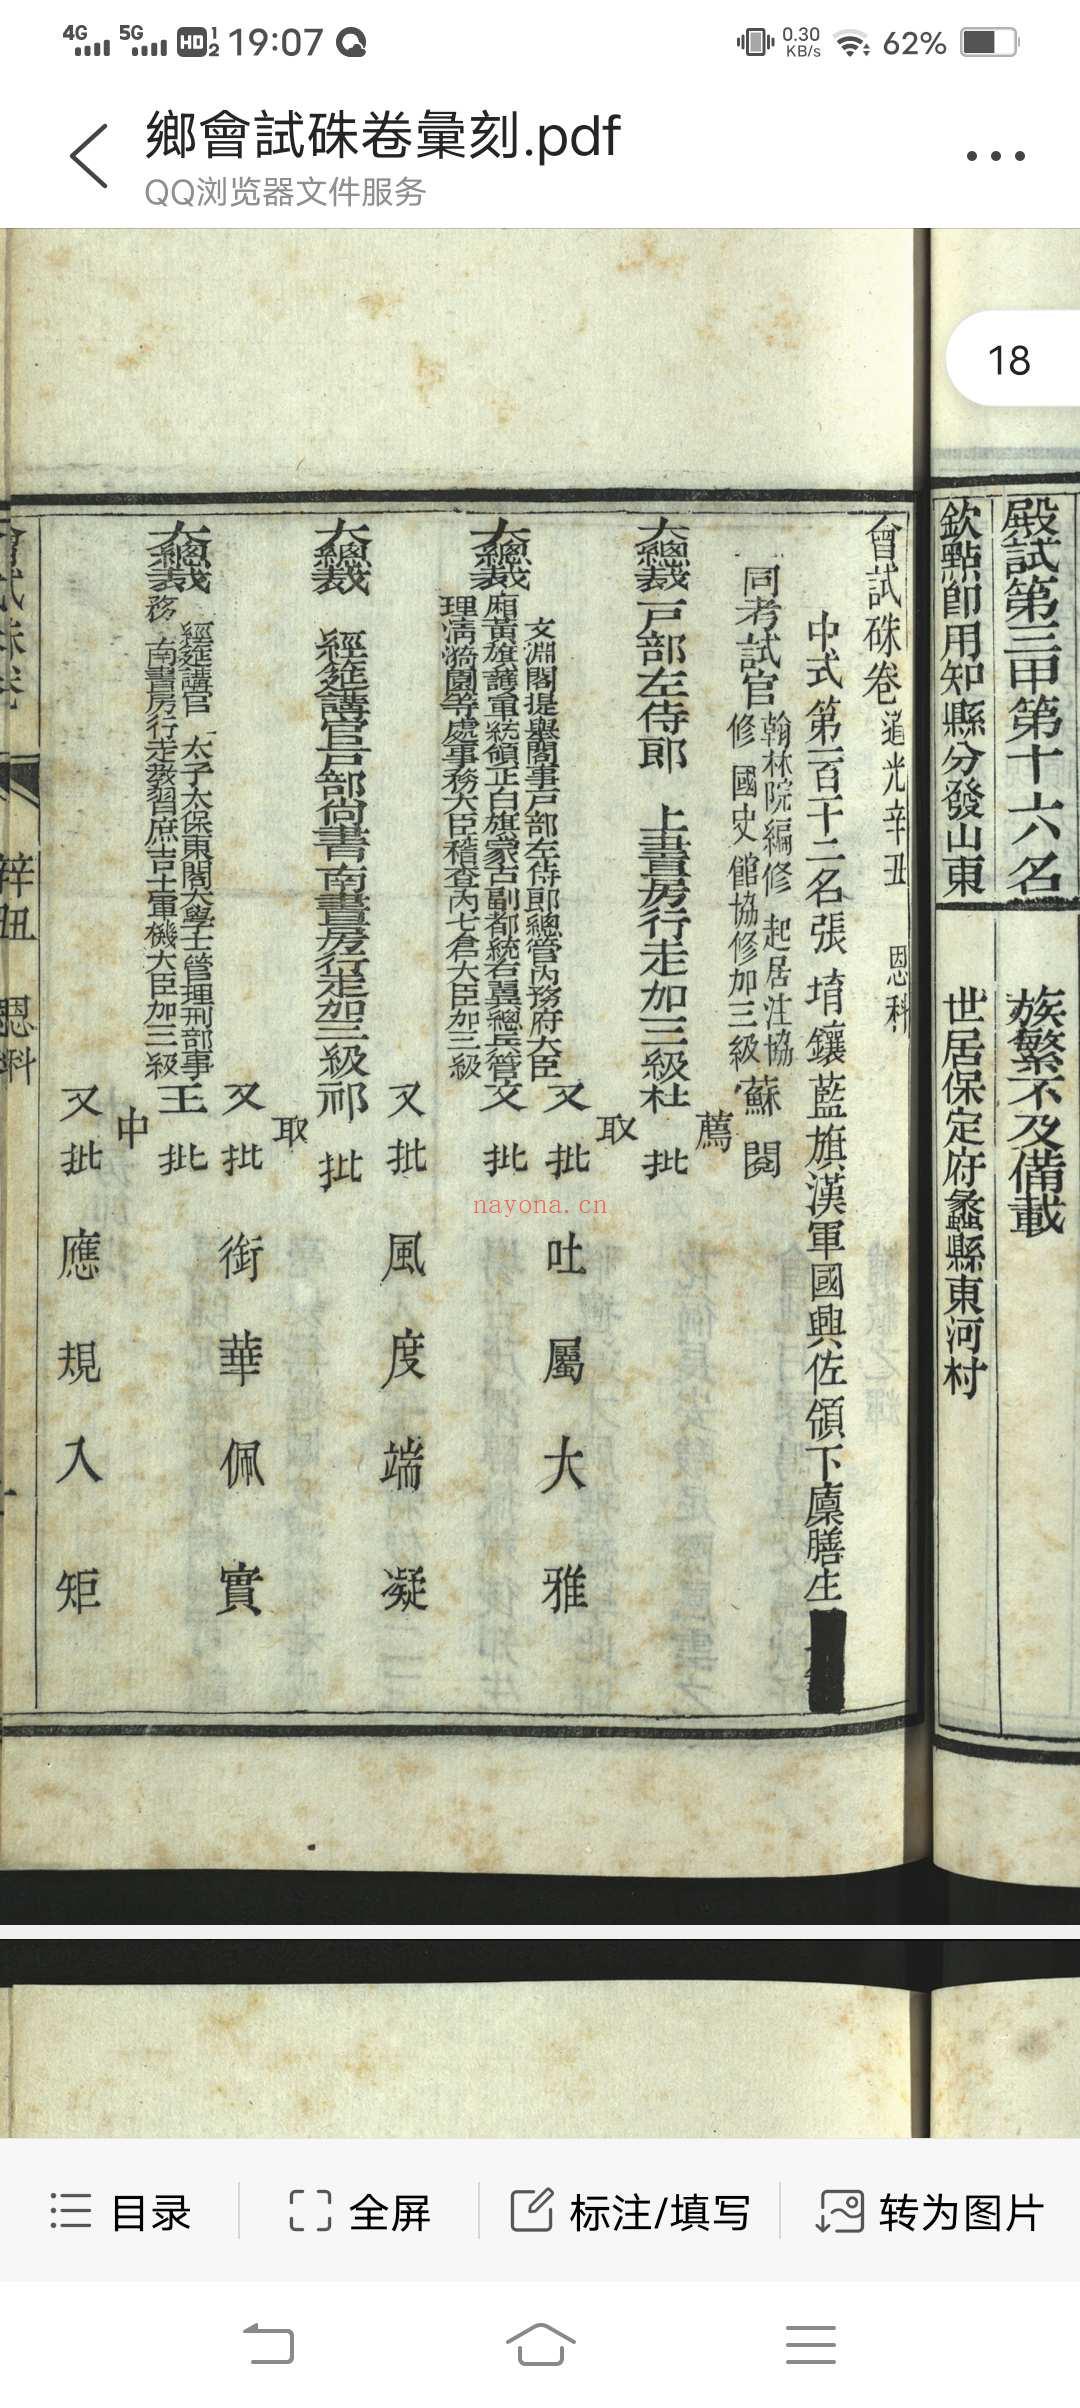 4G 5G HD 1 2 19:07 0.30 KB/s 62%
鄉會試硃卷彙刻.pdf
QQ浏览器文件服务
18
殿試第三甲第十六名
族繁不及備載
欽點卽用知縣分發山東
世居保定府蠡縣東河村
會試硃卷 道光辛丑 恩科
中式第一百十二名張堉鑲藍旗漢軍國興佐領下廩膳生
同考試官
翰林院編修 起居注協
修 國史館協修加三級
蘇 閱
薦
大總裁戶部左侍郎 上書房行走加三級杜 批
取
又批 吐屬大雅
大總裁
文淵閣提舉閣事戶部左侍郎總管內務府大臣
廂黃旗護軍統領正白旗蒙古副都統右翼總兵管
理淸漪園等處事務大臣稽查內七倉大臣加三級
文 批
又批 風度端凝
大總裁 經筵講官戶部尙書南書房行走加三級祁 批
取
又批 銜華佩實
大總裁
經筵講官 太子太保東閣大學士管理刑部事
務 南書房行走敎習庶吉士軍機大臣加三級
王 批
中
又批 應規入矩
會試硃卷 辛丑 恩科
nayona.cn
目录
全屏
标注/填写
转为图片